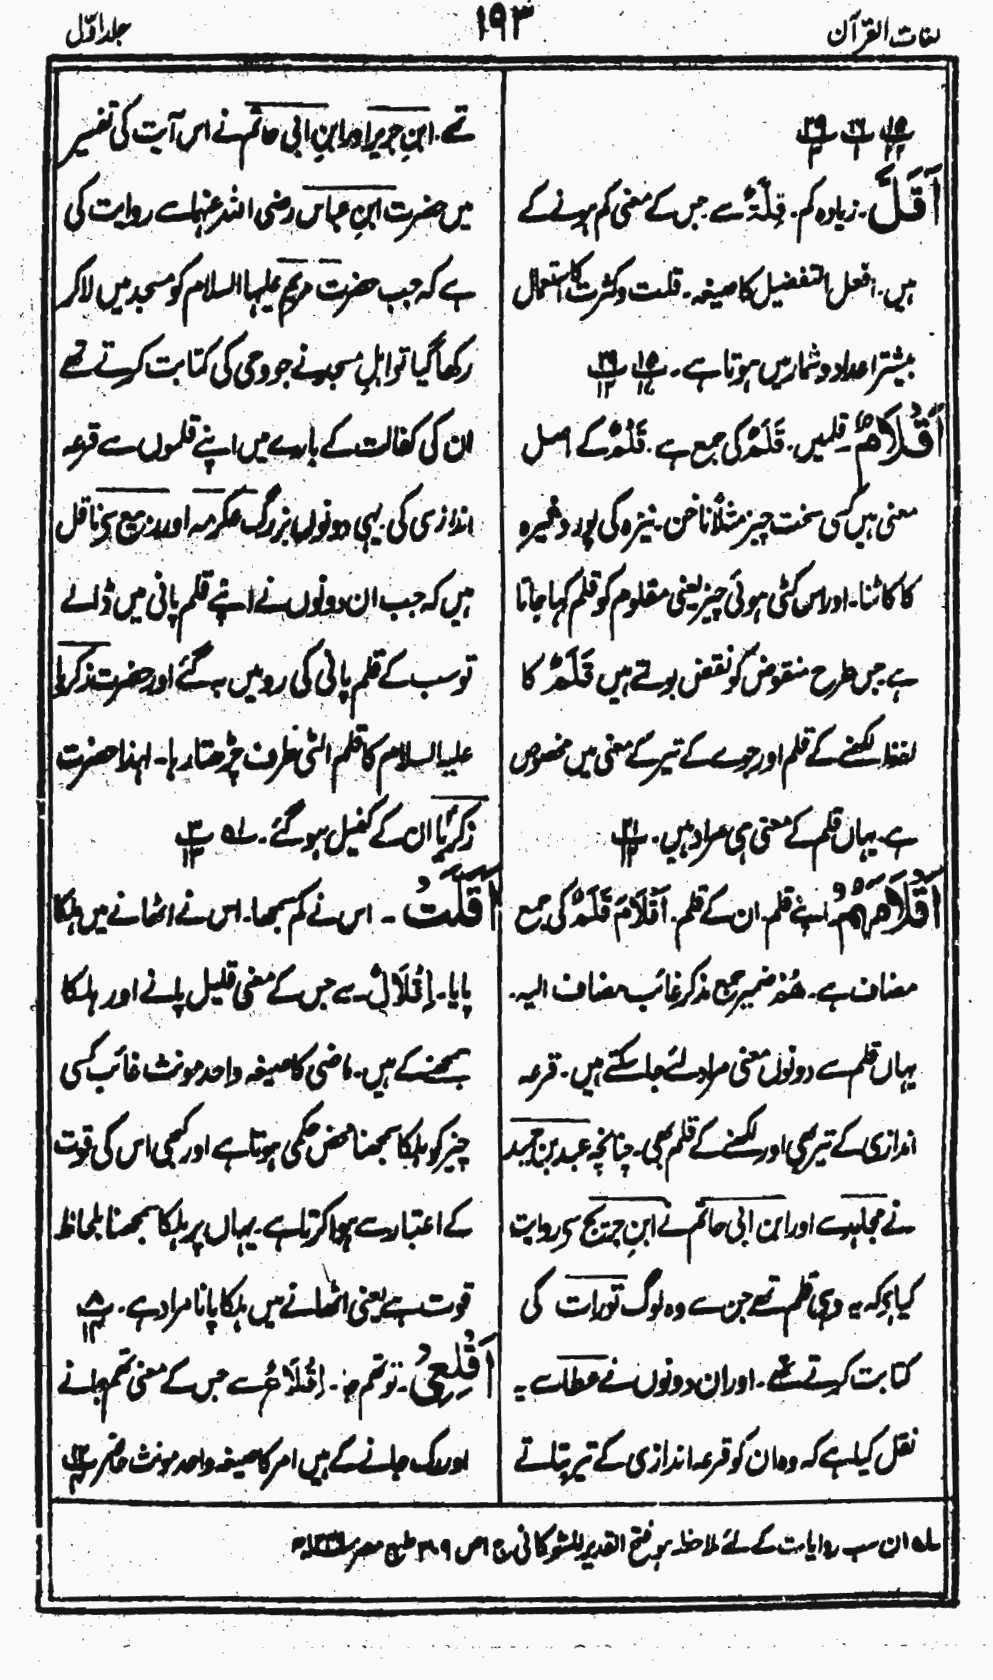 لغات القرآن
۱۹۳
جلد اوّل
اَقَلَّ۔ زیادہ کم۔ قِلَّۃٌ سے جس کے معنی کم ہونے کے
ہیں۔ افعل التفضیل کا صیغہ۔ قلت و کثرت کا استعمال
بیشتر اعداد و شمار میں ہوتا ہے۔
اَقْلَامٌ۔ قلمیں۔ قَلَمٌ کی جمع ہے۔ قَلْمٌ کے اصل
معنی ہیں کسی سخت چیز مثلاً ناخن۔ نیزہ کی پور وغیرہ
کا کاٹنا۔ اور اس کٹی ہوئی چیز یعنی مقلوم کو قلم کہا جاتا
ہے جس طرح منقوض کو نقض بولتے ہیں قَلَمٌ کا
لفظ لکھنے کے قلم اور جوے کے تیر کے معنی میں مخصوص
ہے۔ یہاں قلم کے معنی ہی مراد ہیں۔
اَقْلَامَہُمْ۔ اپنے قلم۔ ان کے قلم۔ اَقْلَامَ قَلَمٌ کی جمع
مضاف ہے۔ ھُمْ ضمیر جمع مذکر غائب مضاف الیہ۔
یہاں قلم سے دونوں معنی مراد لئے جا سکتے ہیں۔ قرعہ
اندازی کے تیر بھی اور لکھنے کے قلم بھی۔ چنانچہ عبد بن حمید
نے مجاہد سے اور ابن ابی حاتم نے ابنِ جریج سے روایت
کیا ہے کہ یہ وہی قلم تھے جن سے وہ لوگ تورات کی
کتابت کرتے تھے۔ اور ان دونوں نے عطا سے یہ
نقل کیا ہے کہ وہ ان کو قرعہ اندازی کے تیر بتلاتے
تھے۔ ابنِ جریر اور ابنِ ابی حاتم نے اس آیت کی تفسیر
میں حضرت ابنِ عباس رضی اللہ عنہما سے روایت کی
ہے کہ جب حضرت مریم علیہا السلام کو مسجد میں لا کر
رکھا گیا تو اہلِ مسجد نے جو وحی کی کتابت کرتے تھے
ان کی کفالت کے بارے میں اپنے قلموں سے قرعہ
اندازی کی۔ یہی دونوں بزرگ عکرمہ اور ربیع سے ناقل
ہیں کہ جب ان دونوں نے اپنے قلم پانی میں ڈالے
تو سب کے قلم پانی کی رو میں بہ گئے اور حضرت زکریا
علیہ السلام کا قلم الٹی طرف چڑھتا رہا۔ لہذا حضرت
زکریا ان کے کفیل ہو گئے۔
اَقَلَّتْ۔ اس نے کم سمجھا۔ اس نے اٹھانے میں ہلکا
پایا۔ اِقْلَالٌ سے جس کے معنی قلیل پانے اور ہلکا
سمجھنے کے ہیں۔ ماضی کا صیغہ واحد مونث غائب کسی
چیز کو ہلکا سمجھنا محض حکمی ہوتا ہے اور کبھی اس کی قوت
کے اعتبار سے ہوا کرتا ہے۔ یہاں پر ہلکا سمجھنا بلحاظ
قوت ہے یعنی اٹھانے میں ہلکا پانا مراد ہے۔
اَقْلِعِیْ۔ تو تھم جا۔ اِقْلَاعٌ سے جس کے معنی تھم جانے
اور رک جانے کے ہیں امر کا صیغہ واحد مونث حاضر
لہ ان سب روایات کے لئے ملاحظہ ہو فتح القدیر للشوکانی ج ۱ ص ۳۰۹ طبع مصر